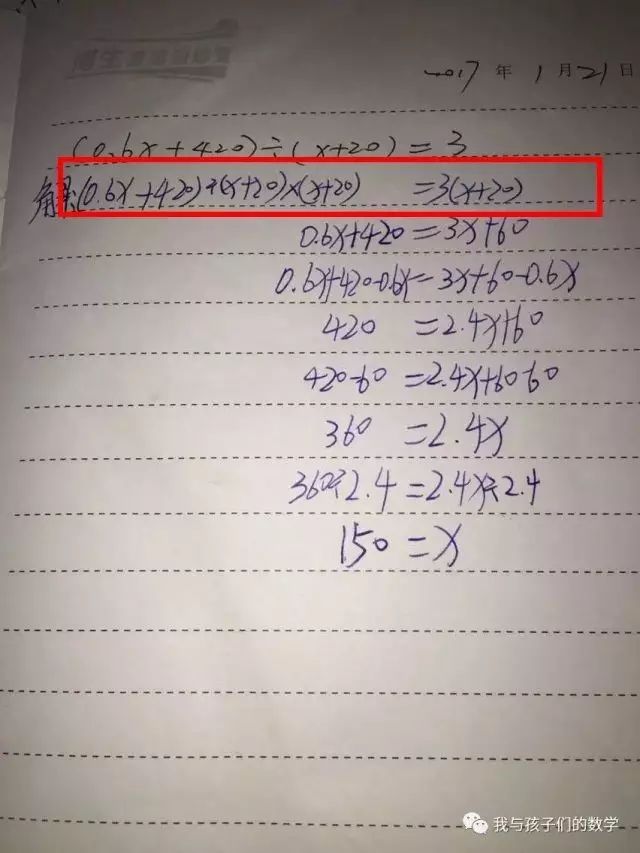 2017年1月21日
(0.6x+420)÷(x+20)=3
解:(0.6x+420)÷(x+20)×(x+20)=3(x+20)
0.6x+420=3x+60
0.6x+420-0.6x=3x+60-0.6x
420=2.4x+60
420-60=2.4x+60-60
360=2.4x
360÷2.4=2.4x÷2.4
150=x
我与孩子们的数学